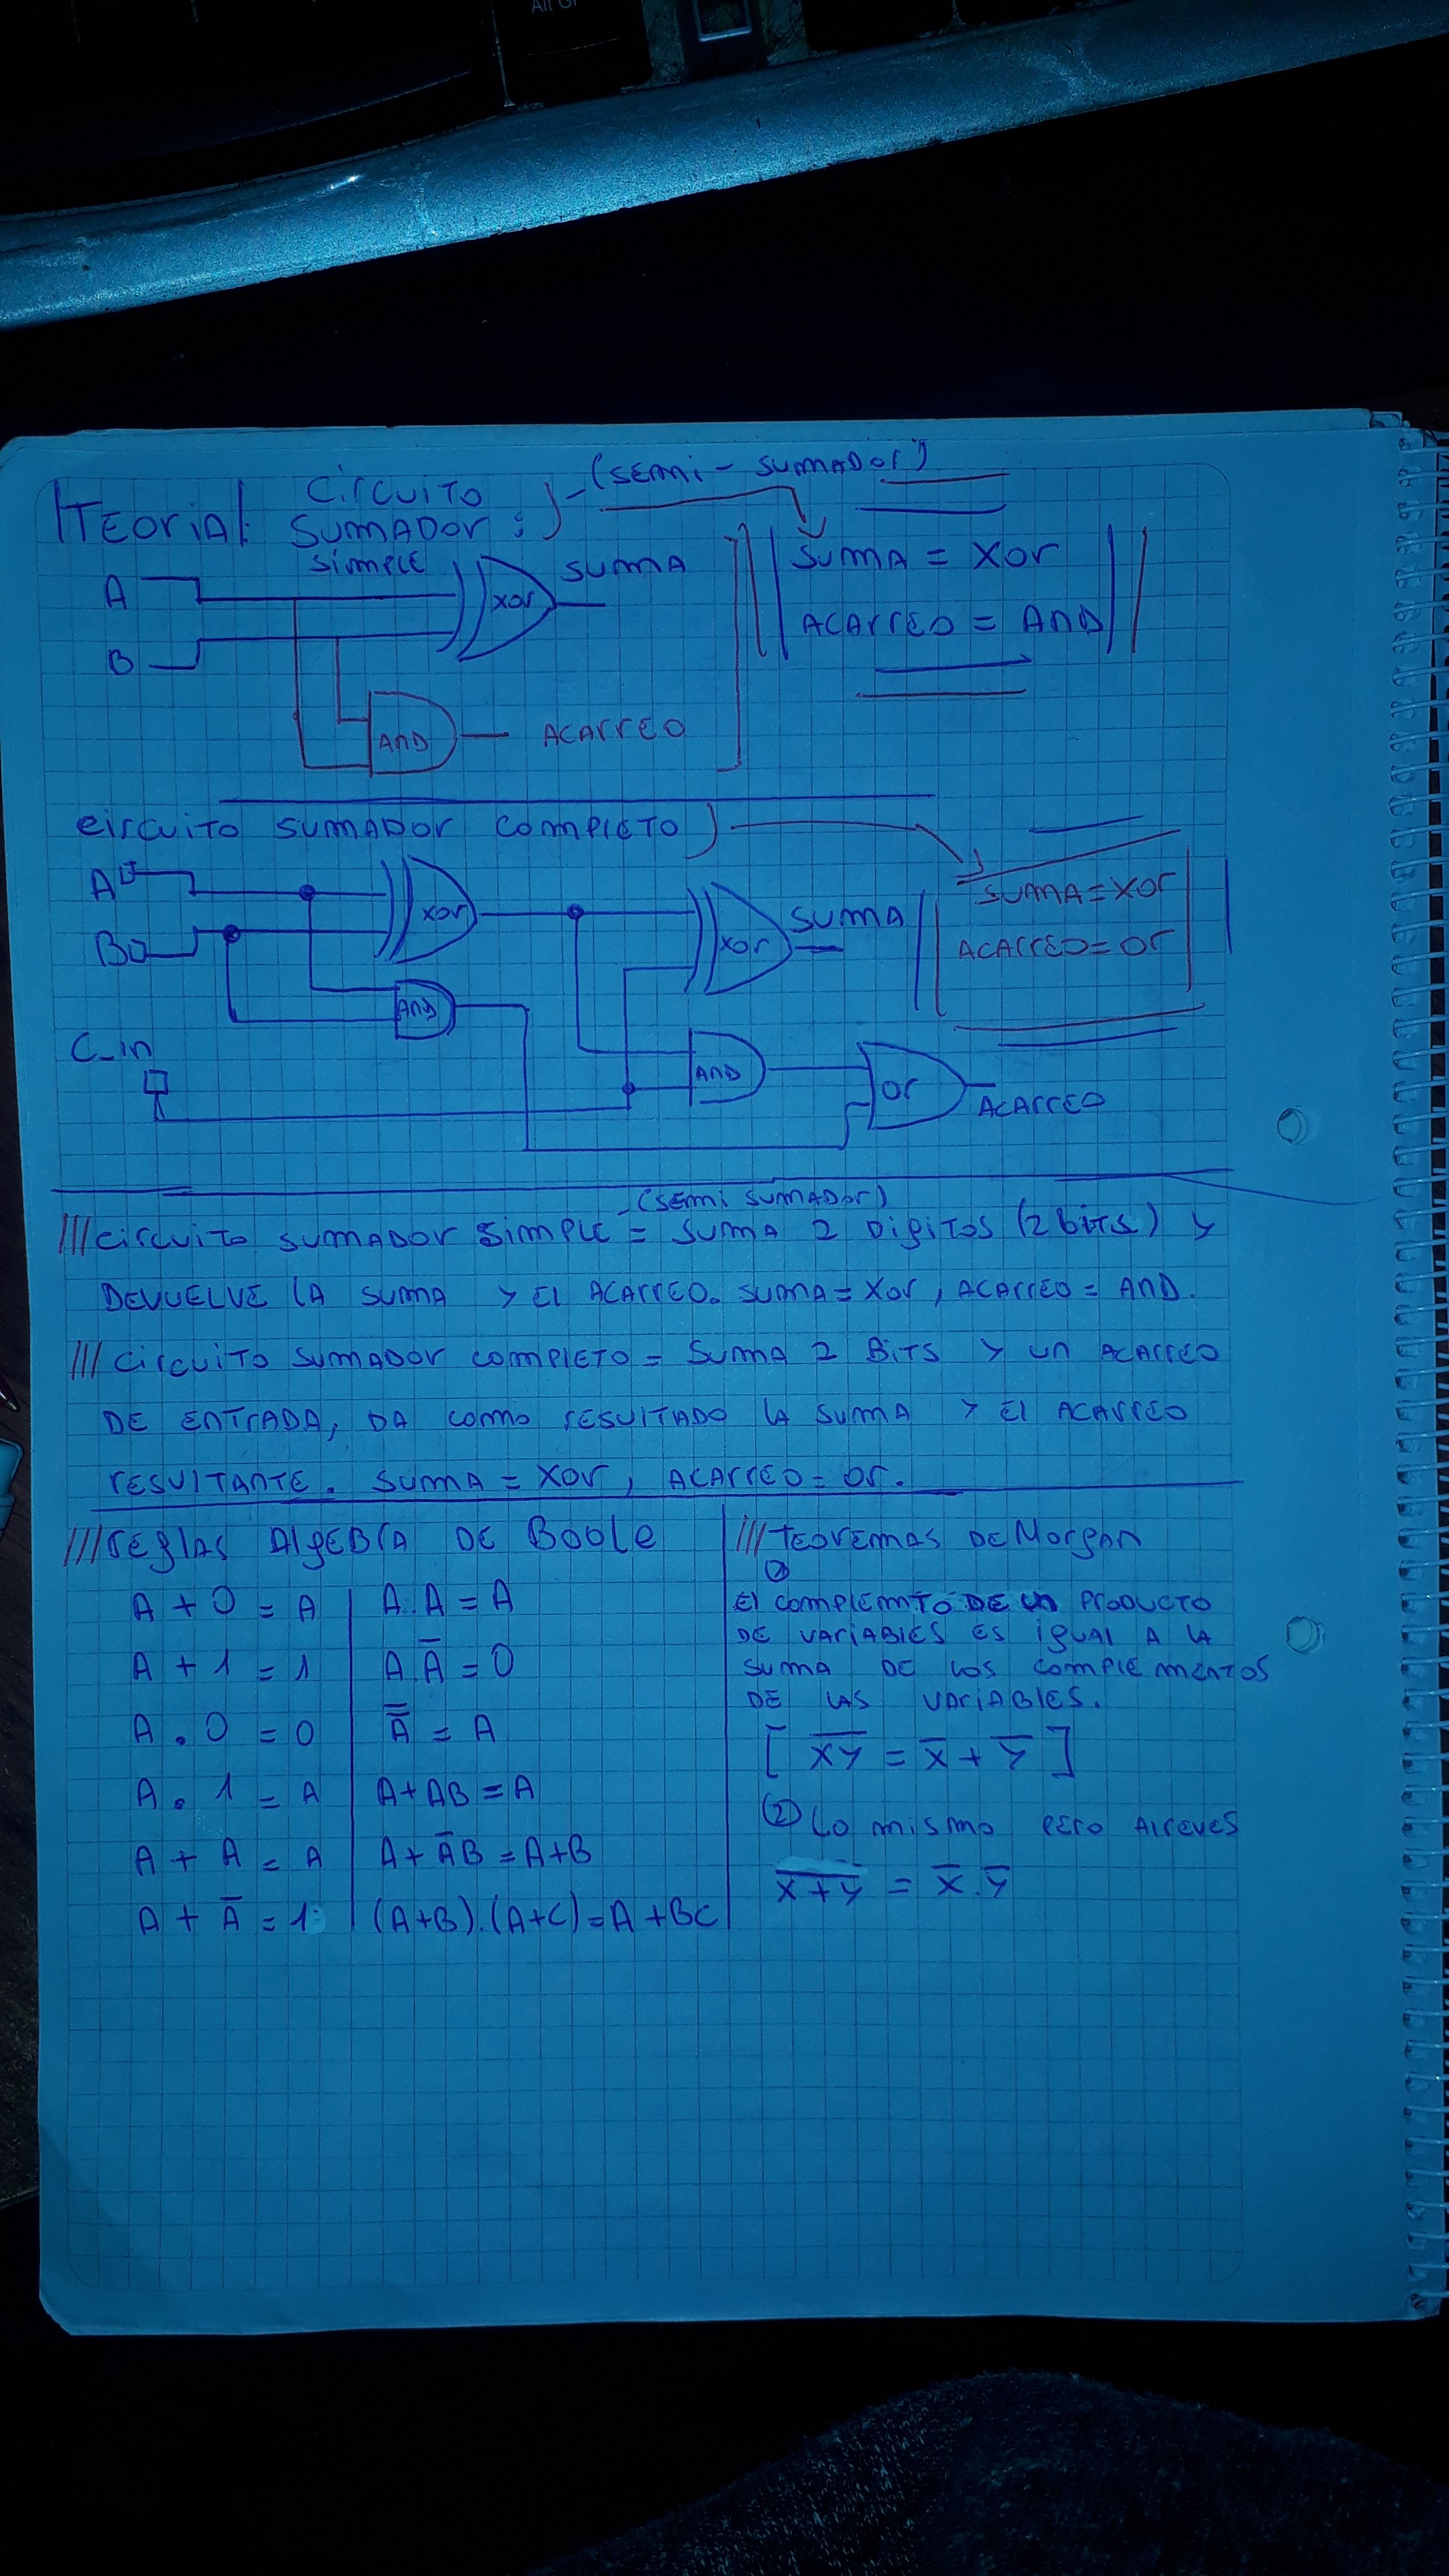 Alt Gr
TEORIA: CIRCUITO SUMADOR: (SEMI - SUMADOR)
SIMPLE
A
B
XOR
SUMA
AND
ACARREO
SUMA = XOR
ACARREO = AND
CIRCUITO SUMADOR COMPLETO
A
B
C_in
XOR
AND
XOR
SUMA
AND
OR
ACARREO
SUMA = XOR
ACARREO = OR
(SEMI SUMADOR)
/// CIRCUITO SUMADOR SIMPLE = SUMA 2 DIGITOS (2 bits) Y
DEVUELVE LA SUMA Y EL ACARREO. SUMA = XOR, ACARREO = AND.
/// CIRCUITO SUMADOR COMPLETO = SUMA 2 BITS Y UN ACARREO
DE ENTRADA, DA COMO RESULTADO LA SUMA Y EL ACARREO
RESULTANTE. SUMA = XOR, ACARREO = OR.
/// REGLAS ALGEBRA DE BOOLE
A + 0 = A
A + 1 = 1
A . 0 = 0
A . 1 = A
A + A = A
A + A̅ = 1
A . A = A
A . A̅ = 0
A̿ = A
A + AB = A
A + A̅B = A + B
(A+B).(A+C) = A + BC
/// TEOREMAS DE Morgan
①
El COMPLEMTO DE UN PRODUCTO
DE VARIABLES ES IGUAL A LA
SUMA DE LOS COMPLEMENTOS
DE LAS VARIABLES.
[ X̅Y̅ = X̅ + Y̅ ]
② LO MISMO PERO ALREVES
X̅+̅Y̅ = X̅ . Y̅